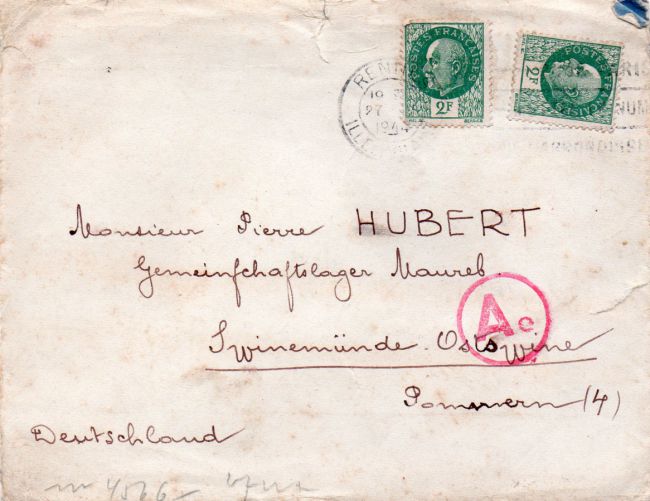 POSTES FRANÇAISES
2F
POSTES FRANÇAISES
2F
RENN
19
27
1944
ILLE
Monsieur Pierre HUBERT
Gemeinschaftslager Maureb.
Ae
Swinemünde-Ostswine
Pommern (4)
Deutschland